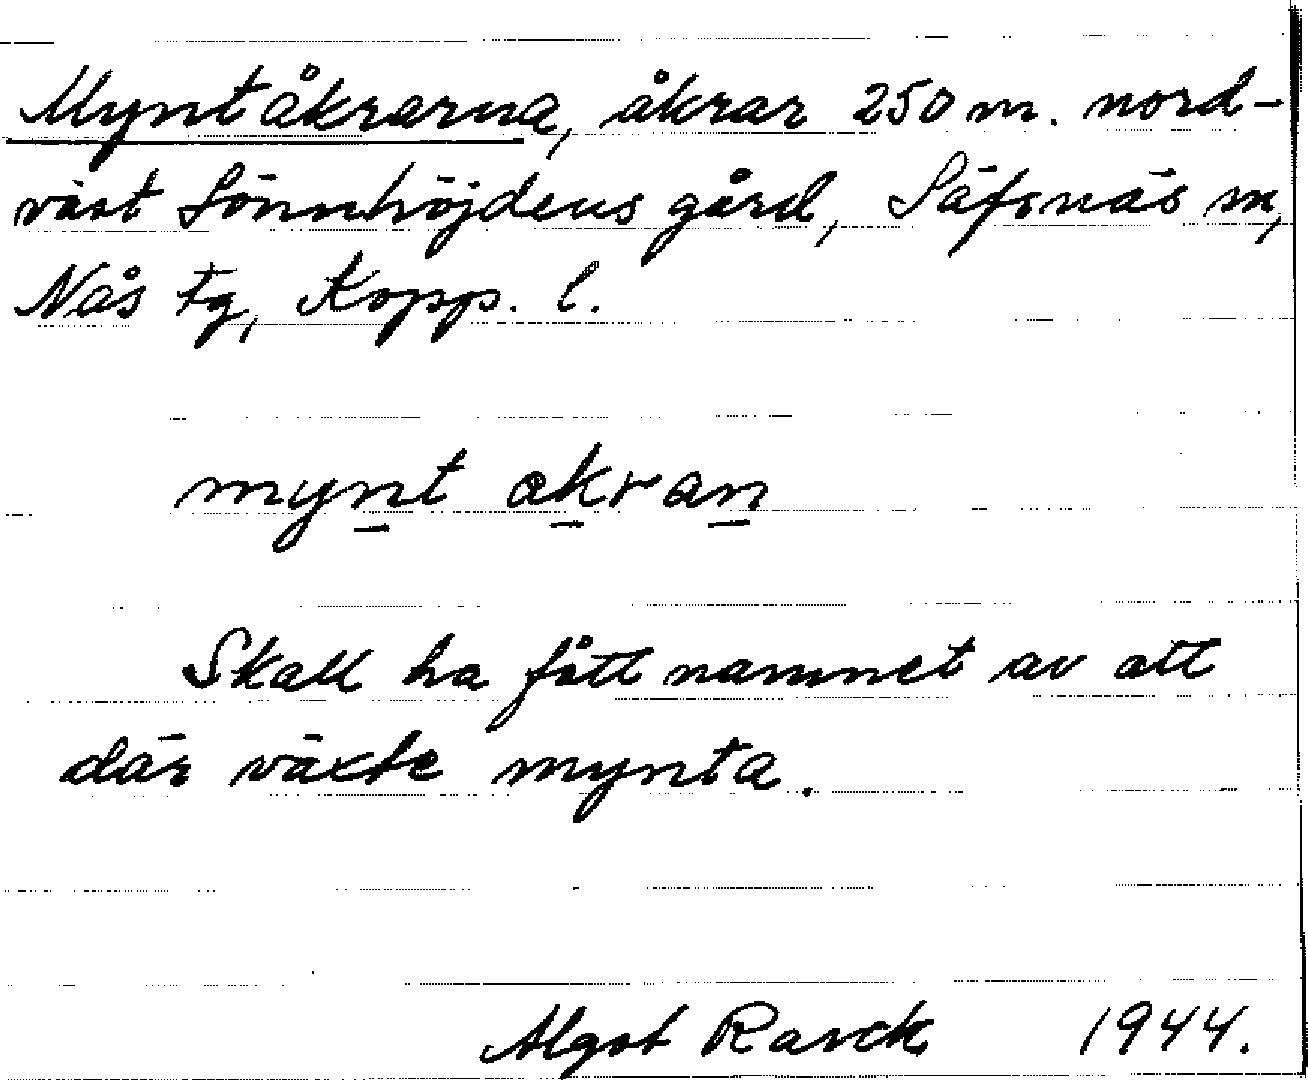 Myntåkrarna, åkrar 250 m. nord-
väst Lönnhöjdens gård, Säfsnäs sn,
Nås Fg, Kopp. l.
mynt akran
Skall ha fått namnet av att
där växte mynta.
Algot 1944.